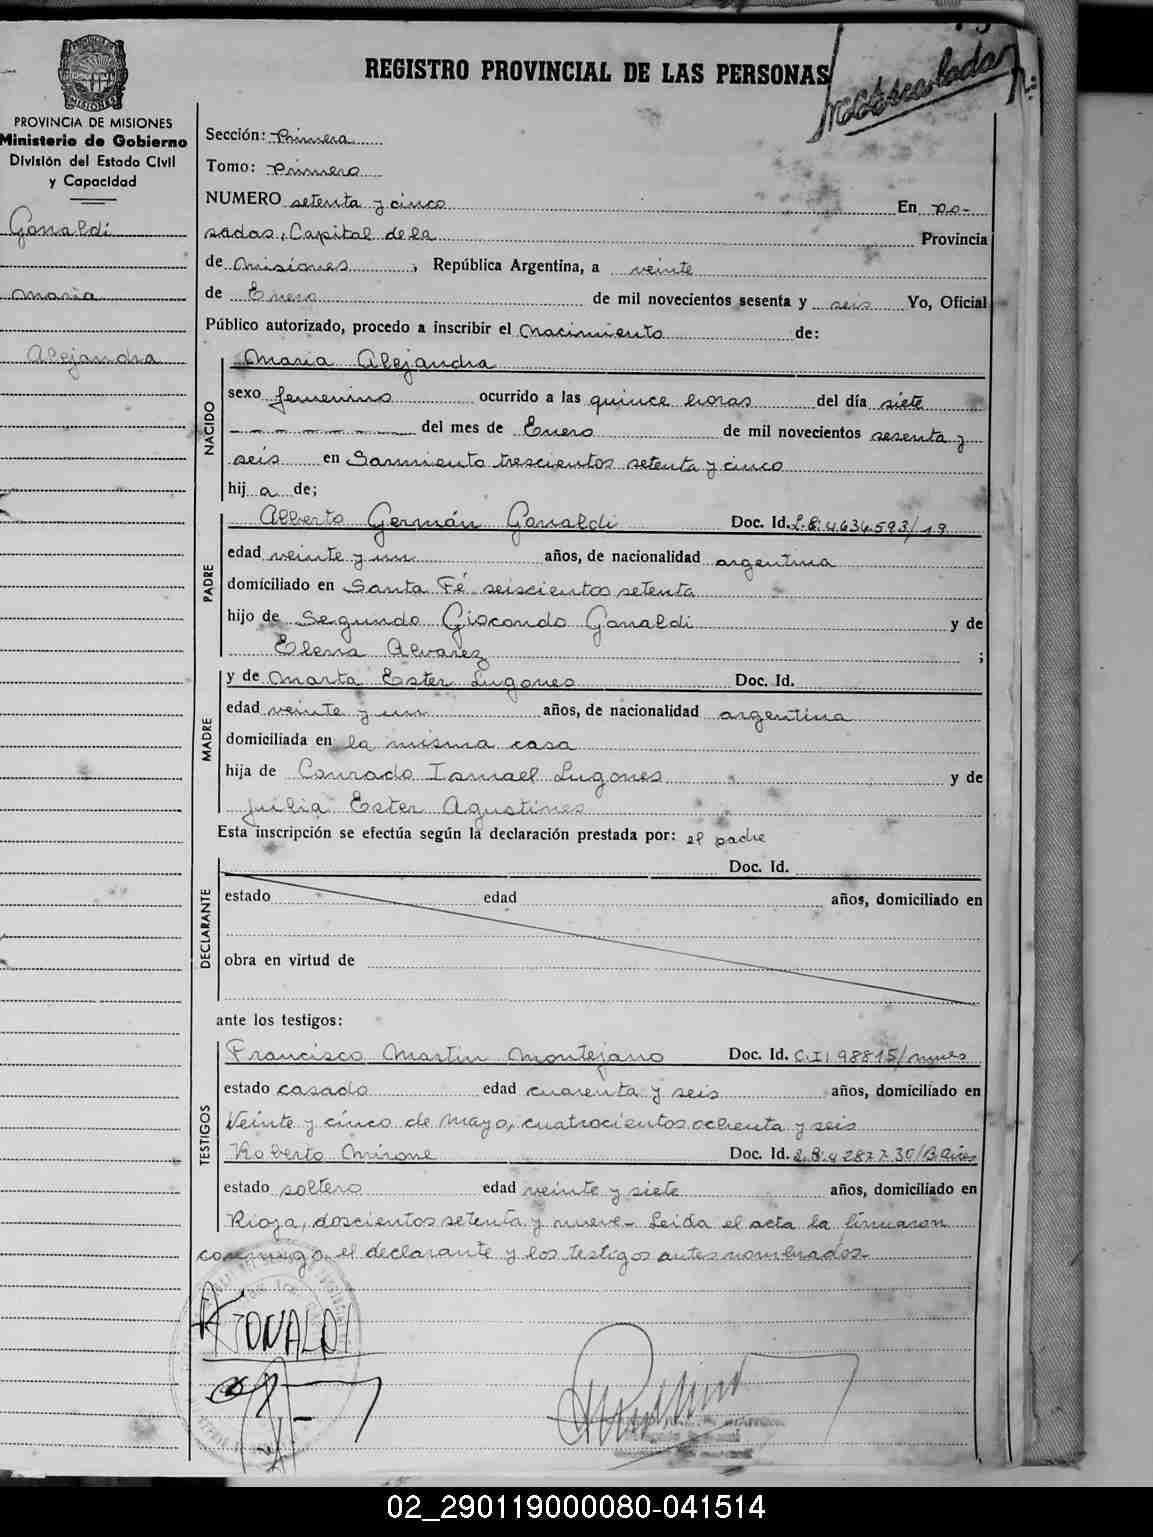 REGISTRO PROVINCIAL DE LAS PERSONAS
PROVINCIA DE MISIONES
Ministerio de Gobierno
División del Estado Civil
y Capacidad
Gonaldi
Maria
Alejandra
Sección: Primera
Tomo: Primero
NUMERO setenta y cinco En Po-
sadas, Capital de la Provincia
de Misiones, República Argentina, a veinte
de Enero de mil novecientos sesenta y seis Yo, Oficial
Público autorizado, procedo a inscribir el Nacimiento de:
NACIDO
Maria Alejandra
sexo femenino ocurrido a las quince horas del día siete
del mes de Enero de mil novecientos sesenta y
seis en Sarmiento trescientos setenta y cinco
hija de;
PADRE
Alberto Germán Gonaldi Doc. Id. L.E. 4.634.593/19
edad veinte y un años, de nacionalidad argentina
domiciliado en Santa Fé seiscientos setenta
hijo de Segundo Giocondo Gonaldi y de
Elena Alvarez ;
MADRE
y de Marta Ester Lugones Doc. Id.
edad veinte y un años, de nacionalidad argentina
domiciliada en la misma casa
hija de Conrado Ismael Lugones y de
Julia Ester Agustines
Esta inscripción se efectúa según la declaración prestada por: el padre
DECLARANTE
Doc. Id.
estado edad años, domiciliado en
obra en virtud de
ante los testigos:
TESTIGOS
Francisco Martin Montejano Doc. Id. C.I. 98815/
estado casado edad cuarenta y seis años, domiciliado en
Veinte y cinco de Mayo, cuatrocientos ochenta y seis
Roberto Mirone Doc. Id. L.E. 4287730/B.Aires
estado soltero edad veinte y siete años, domiciliado en
Rioja, doscientos setenta y nueve- Leida el acta la firmaron
conmigo, el declarante y los testigos antes nombrados.-
A GONALDI
02_290119000080-041514